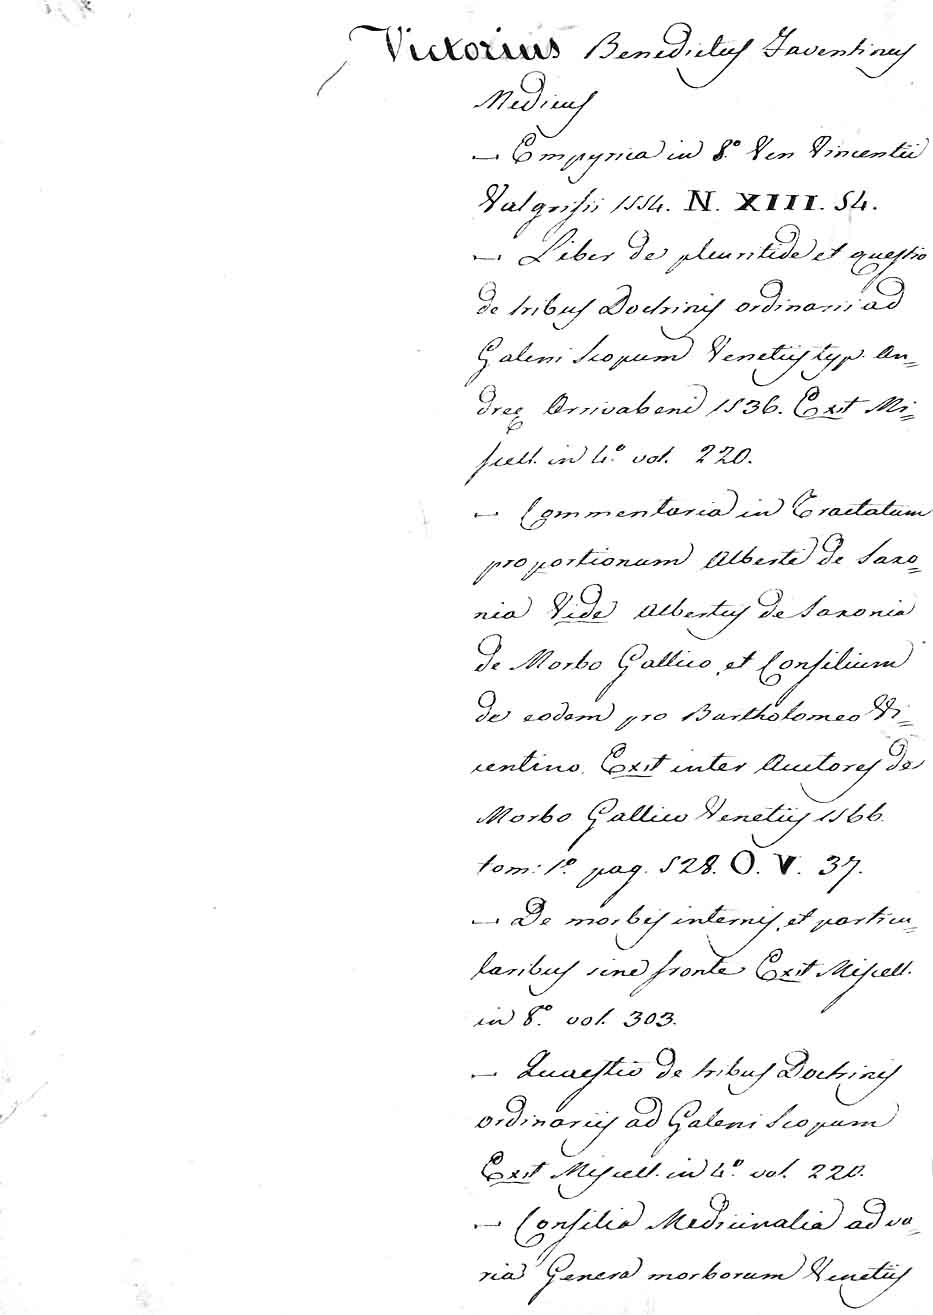 Victorius Benedictus Faventinus
Medicus
— Empyrica in 8.° Ven Vincentii
Valgrisii 1554. N. XIII. 54.
— Liber de pleuritide et questio
de tribus Doctrinis ordinarii ad
Galeni Scopum Venetiis typ. An=
dreę Arrivabeni 1536. Exit Mi=
scell. in 4.° vol. 220.
— Commentaria in Tractatum
proportionum Alberti de Saxo=
nia Vide Albertus de Saxonia
de Morbo Gallico, et Consilium
de eodem pro Bartholomeo Vi=
centino. Exit inter Auctores de
Morbo Gallico Venetiis 1566.
tom: 1.° pag. 528. O. V. 37.
— De morbis internis, et particu=
laribus sine fronte Exit Miscell.
in 8.° vol. 303.
— Quaestio de tribus Doctrinis
ordinariis ad Galeni Scopum
Exit Miscell. in 4.° vol. 220.
— Consilia Medicinalia ad va=
ria Genera morborum Venetiis